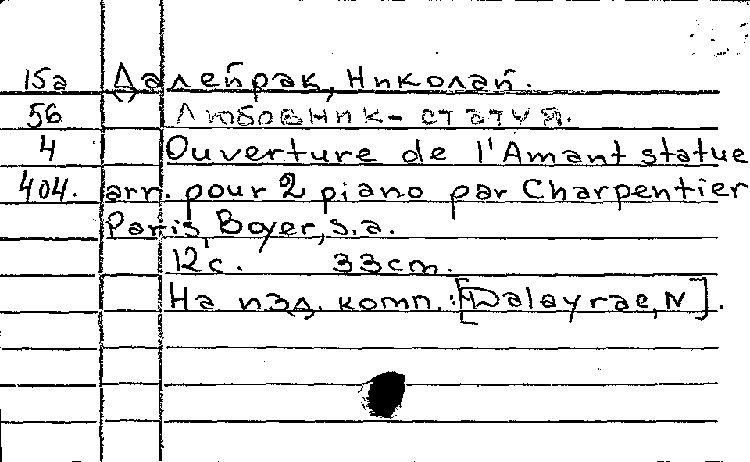 15а Далейрак, Николай.
56 Любовник-статуя.
4 Ouverture de l'Amant statue
404. arr. pour 2 piano par Charpentier
Paris, Boyer, s.a.
12c. 33cm.
На изд. комп.: [Dalayrac, N].